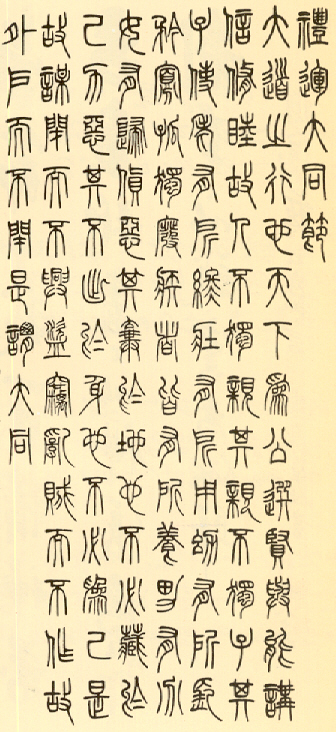 禮運大同節
大道之行也天下為公選賢與能講
信修睦故人不獨親其親不獨子其
子使老有所終壯有所用幼有所長
矜寡孤獨廢疾者皆有所養男有分
女有歸貨惡其棄於地也不必藏於
己力惡其不出於身也不必為己是
故謀閉而不興盜竊亂賊而不作故
外戶而不閉是謂大同